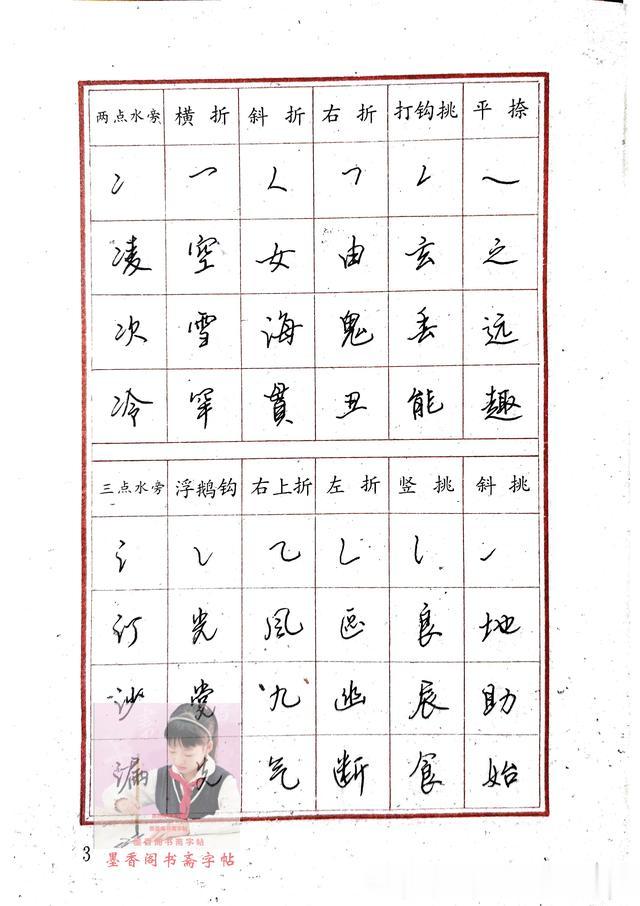 两点水旁 横折 斜折 右折 打钩挑 平捺
冫 ㇇ ㇛ ㇕ ㇙ ㇏
凌 空 女 由 玄 之
次 雪 海 鬼 垂 远
冷 罕 貫 丑 能 趣
三点水旁 浮鹅钩 右上折 左折 竖挑 斜挑
氵 ㇟ ㇈ ㇄ ㇙ ㇀
订 光 風 区 良 地
沙 党 九 幽 辰 助
漏 气 断 食 始
3
墨香阁书斋字帖
墨香阁书斋字帖